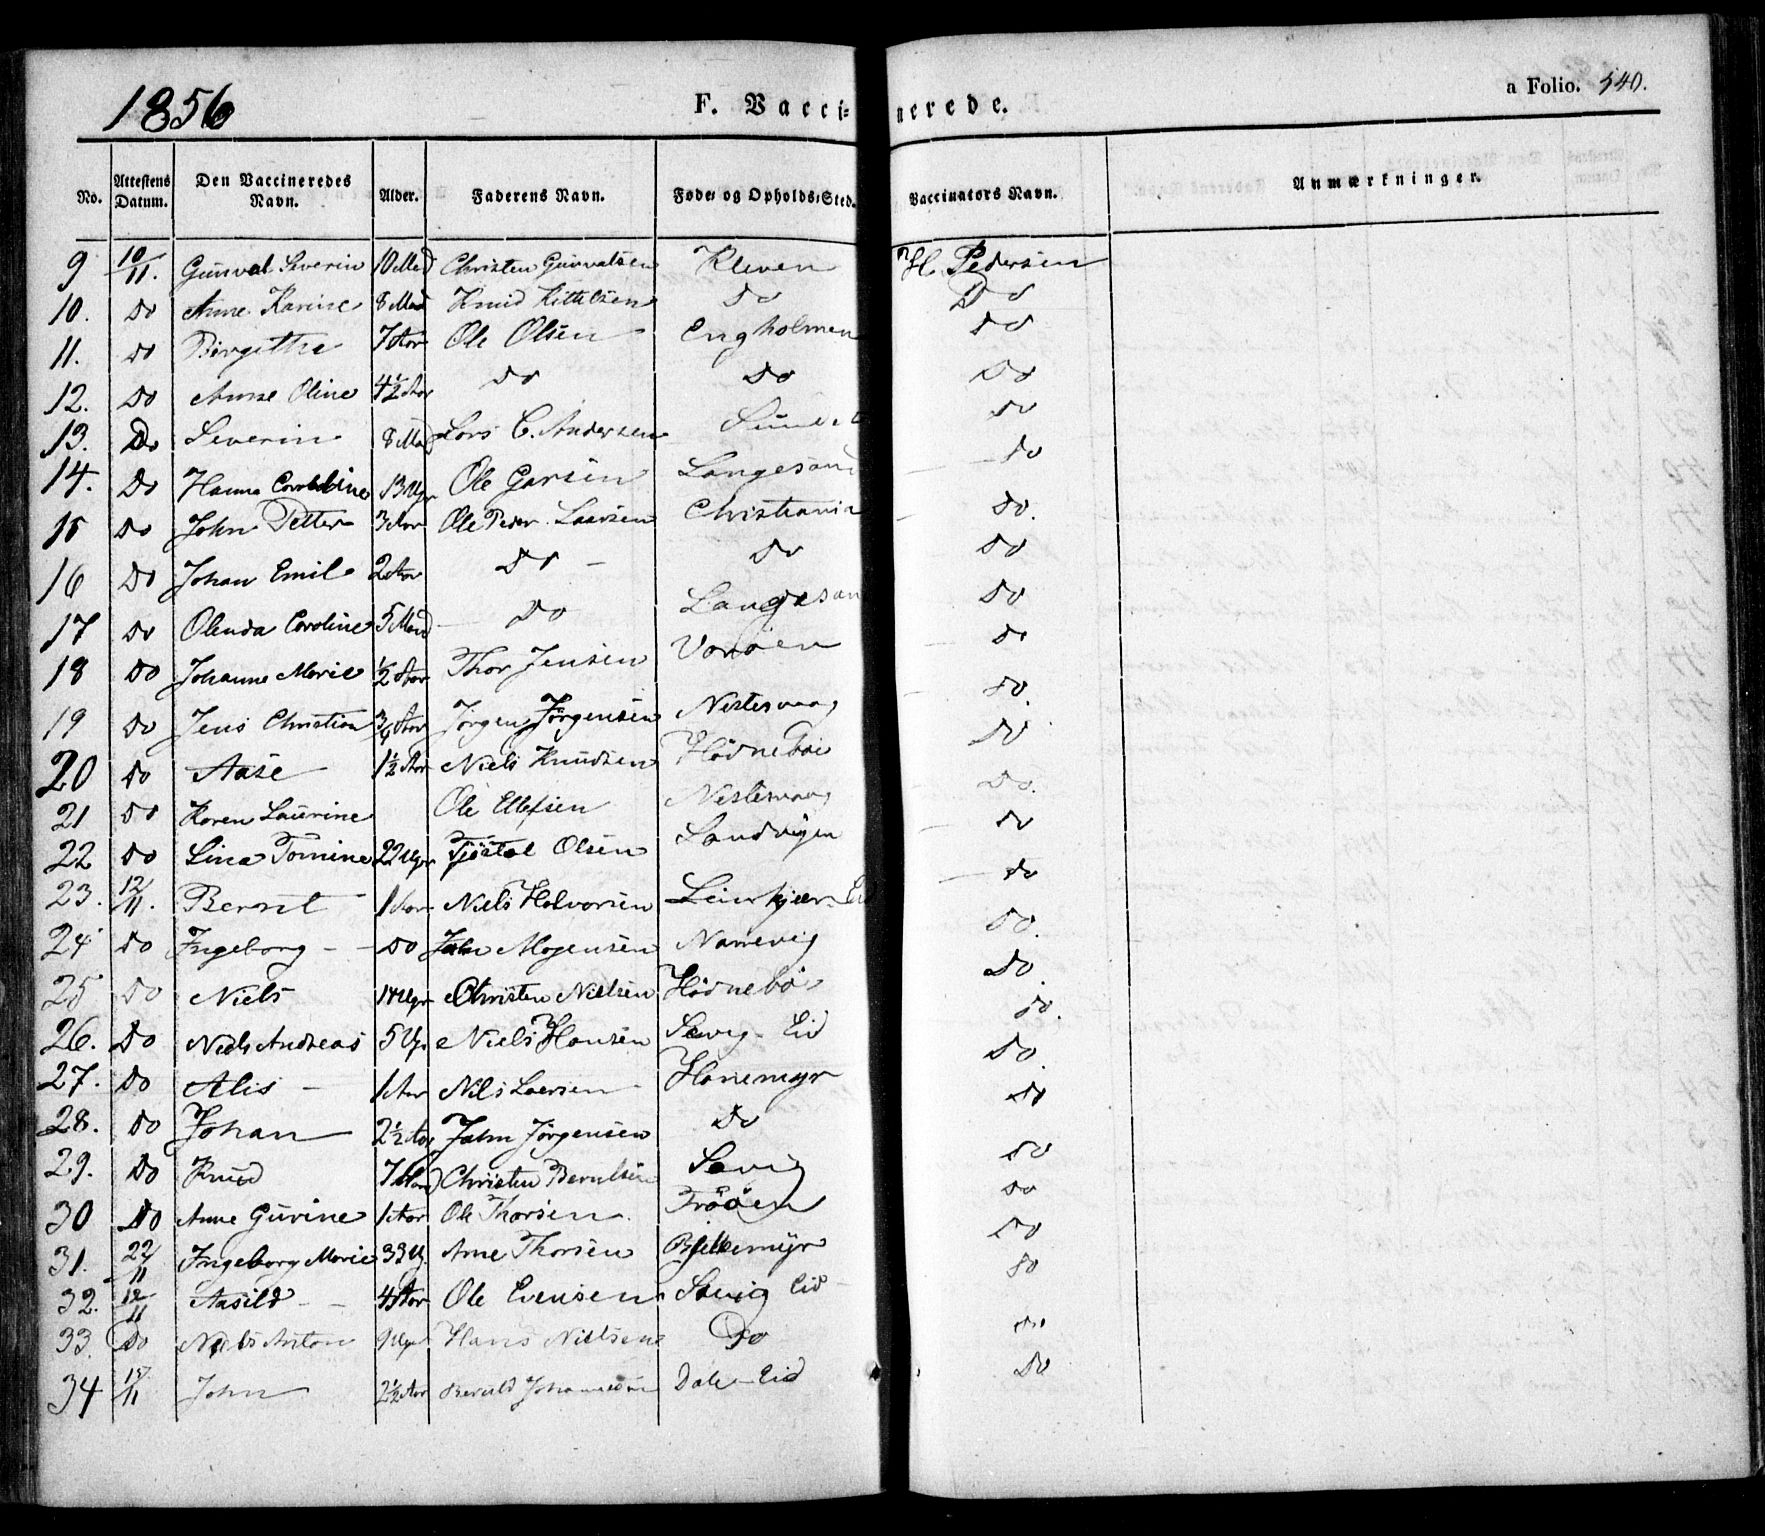 1856
F. Vaccinerede.
a Folio. 540.
No. Attestens Datum. Den Vaccineredes Navn. Alder. Faderens Navn. Føde- og Opholds-Sted. Vaccinators Navn. Anmærkninger.
9 10/11. Gunval Severin 10 Md Christen Gunvalsen Kleven H. Pedersen
10. Do Anne Karine 8 Md Knud Kittelsen Do Do
11. Do Birgitthe 7 Aar Ole Olsen Engholmen Do
12. Do Anne Oline 4½ Aar Do Do Do
13. Do Severin 8 Md Lars C. Andersen Do
14. Do Hanna 13 Ugr Ole Langesand Do
15 Do John Petter 3 Aar Ole Peder Laursen Christiania Do.
16 Do Johan Emil 2 Aar Do Do Do
17 Do Olenda Caroline 5 Mand Do Langesan Do
18 Do Johanne Marie ½ Aar Thor Jensen Vorøen Do
19 Do Jens Christian 3/4 Aar Jørgen Jørgensen Nestesvaag Do.
20 Do Aase 1½ Aar Niels Knudsen Hødnebøe Do
21 Do Karen Laurine Ole Ellefsen Nestesvaag Do.
22 Do Lina Tomine 22 Ugr Tjøstol Olsen Sandvigen Do
23. 12/11. Bernt 1 Aar Niels Halvorsen Leirkjær Eid Do
24 Do Ingeborg Do John Mogensen Narrevig Do.
25 Do Niels 14 Ugr Christen Nielsen Hødnebø Do.
26. Do Niels Andreas 5 Ug. Niels Hansen Savig Eid Do.
27. Do Alis 1 Aar Nils Laersen Hanemyr Do.
28. Do Johan 2½ Aar Jahn Jørgensen Do Do
29. Do Knud 7 Christen Savig Do
30 Do Anne Gurine 1 Aar Ole Thorsen Trøen Do
31. 22/11 Ingeborg Marie 33 U. Arne Thorsen Do
32. 12/11 Aasild 4 Aar Ole Evensen Savig Eid Do
33. Do Niels Anton 9 Ugr Hans Nielsen Do Do
34 18/11 John 2½ Aar Johannesen Dale Eid Do